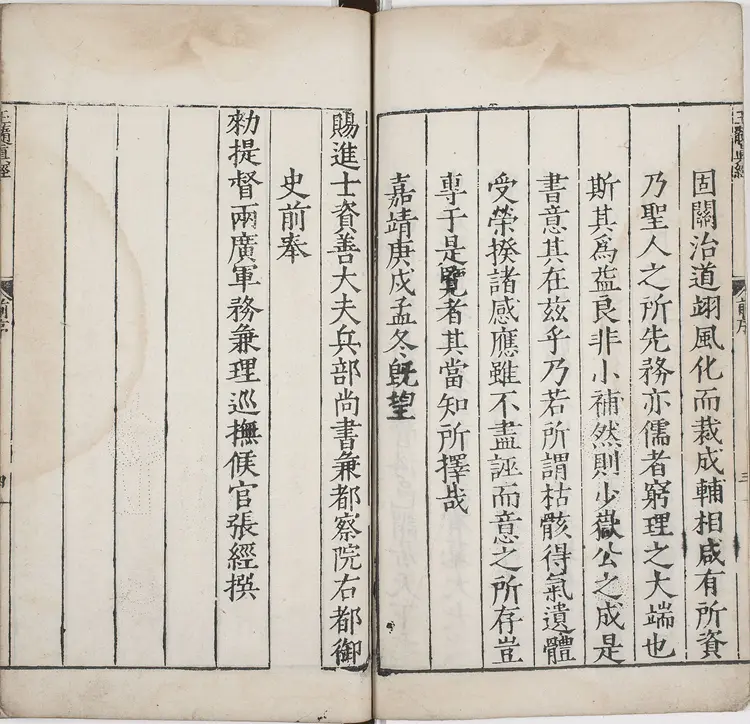 固關治道翊風化而裁成輔相咸有所資
乃聖人之所先務亦儒者窮理之大端也
斯其為益良非小補然則少嶽公之成是
書意其在茲乎乃若所謂枯骸得氣遺體
受榮揆諸感應雖不盡誣而意之所存豈
專于是覽者其當知所擇哉
嘉靖庚戍孟冬既望
賜進士資善大夫兵部尚書兼都察院右都御
史前奉
勑提督兩廣軍務兼理巡撫候官張經撰